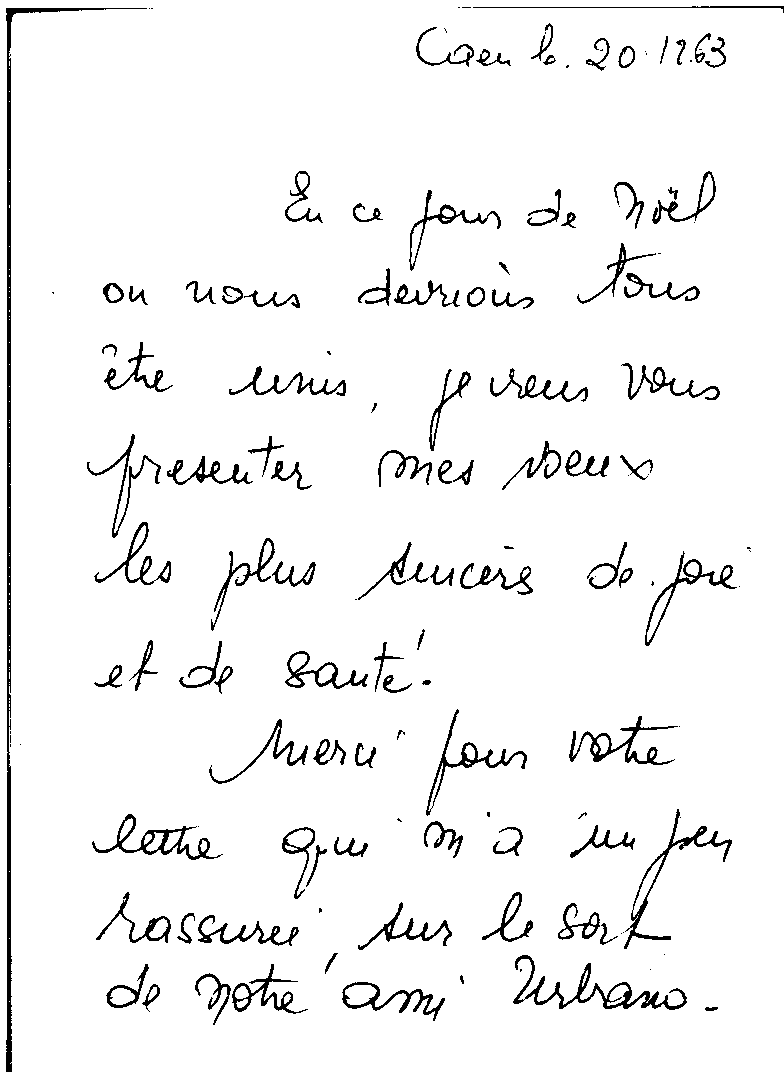 Caen le. 20.12.63
En ce jour de Noël
ou nous devrions tous
être unis, je veux vous
presenter mes voeux
les plus sincères de joie
et de santé.
Merci pour votre
lettre qui m'a un peu
rassurée, sur le sort
de notre ami Urbano.